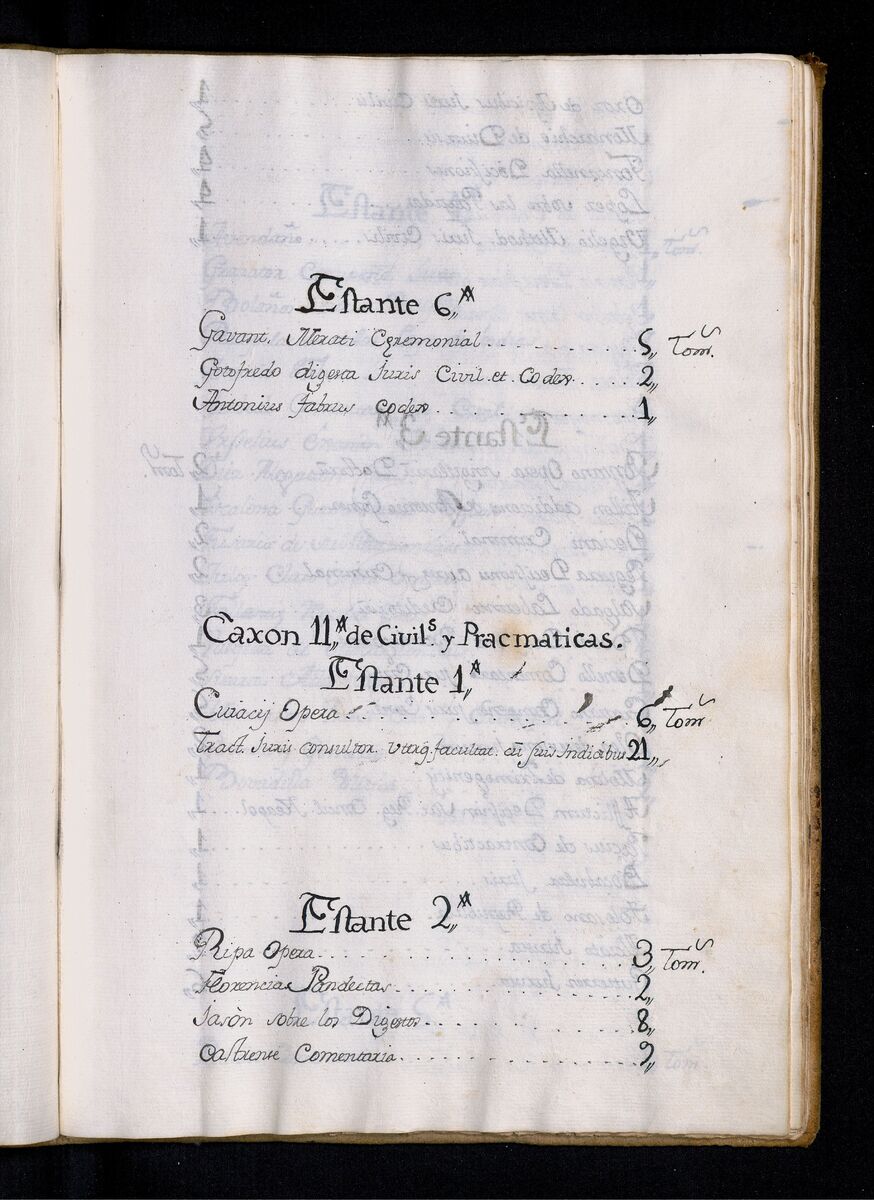 Estante 6,,ᴬ
Gavant. Merati Ceremonial. . . . . . . . . . . 5,, Tom.ˢ
Gotofredo digesta Juris Civil et Codex. . . . 2,,
Antonius fabrus codex. . . . . . . . . . . . . 1,,
Caxon 11,,ᴬ de Civil.ˢ y Pracmaticas.
Estante 1,,ᴬ
Cuiacij Opera . . . . . . . . . . . . . . . . 6,, Tom.ˢ
Tract. Juris consultor. utrq. facultat. cũ suis Indicibus 21,,
Estante 2,,ᴬ
Ripa Opera. . . . . . . . . . . . . . . . . . 3,, Tom.ˢ
Florencias Pandectas. . . . . . . . . . . . . 2,,
Jasòn sobre los Digestos. . . . . . . . . . . 8,,
Castrense Comentaria. . . . . . . . . . . . . 9,,